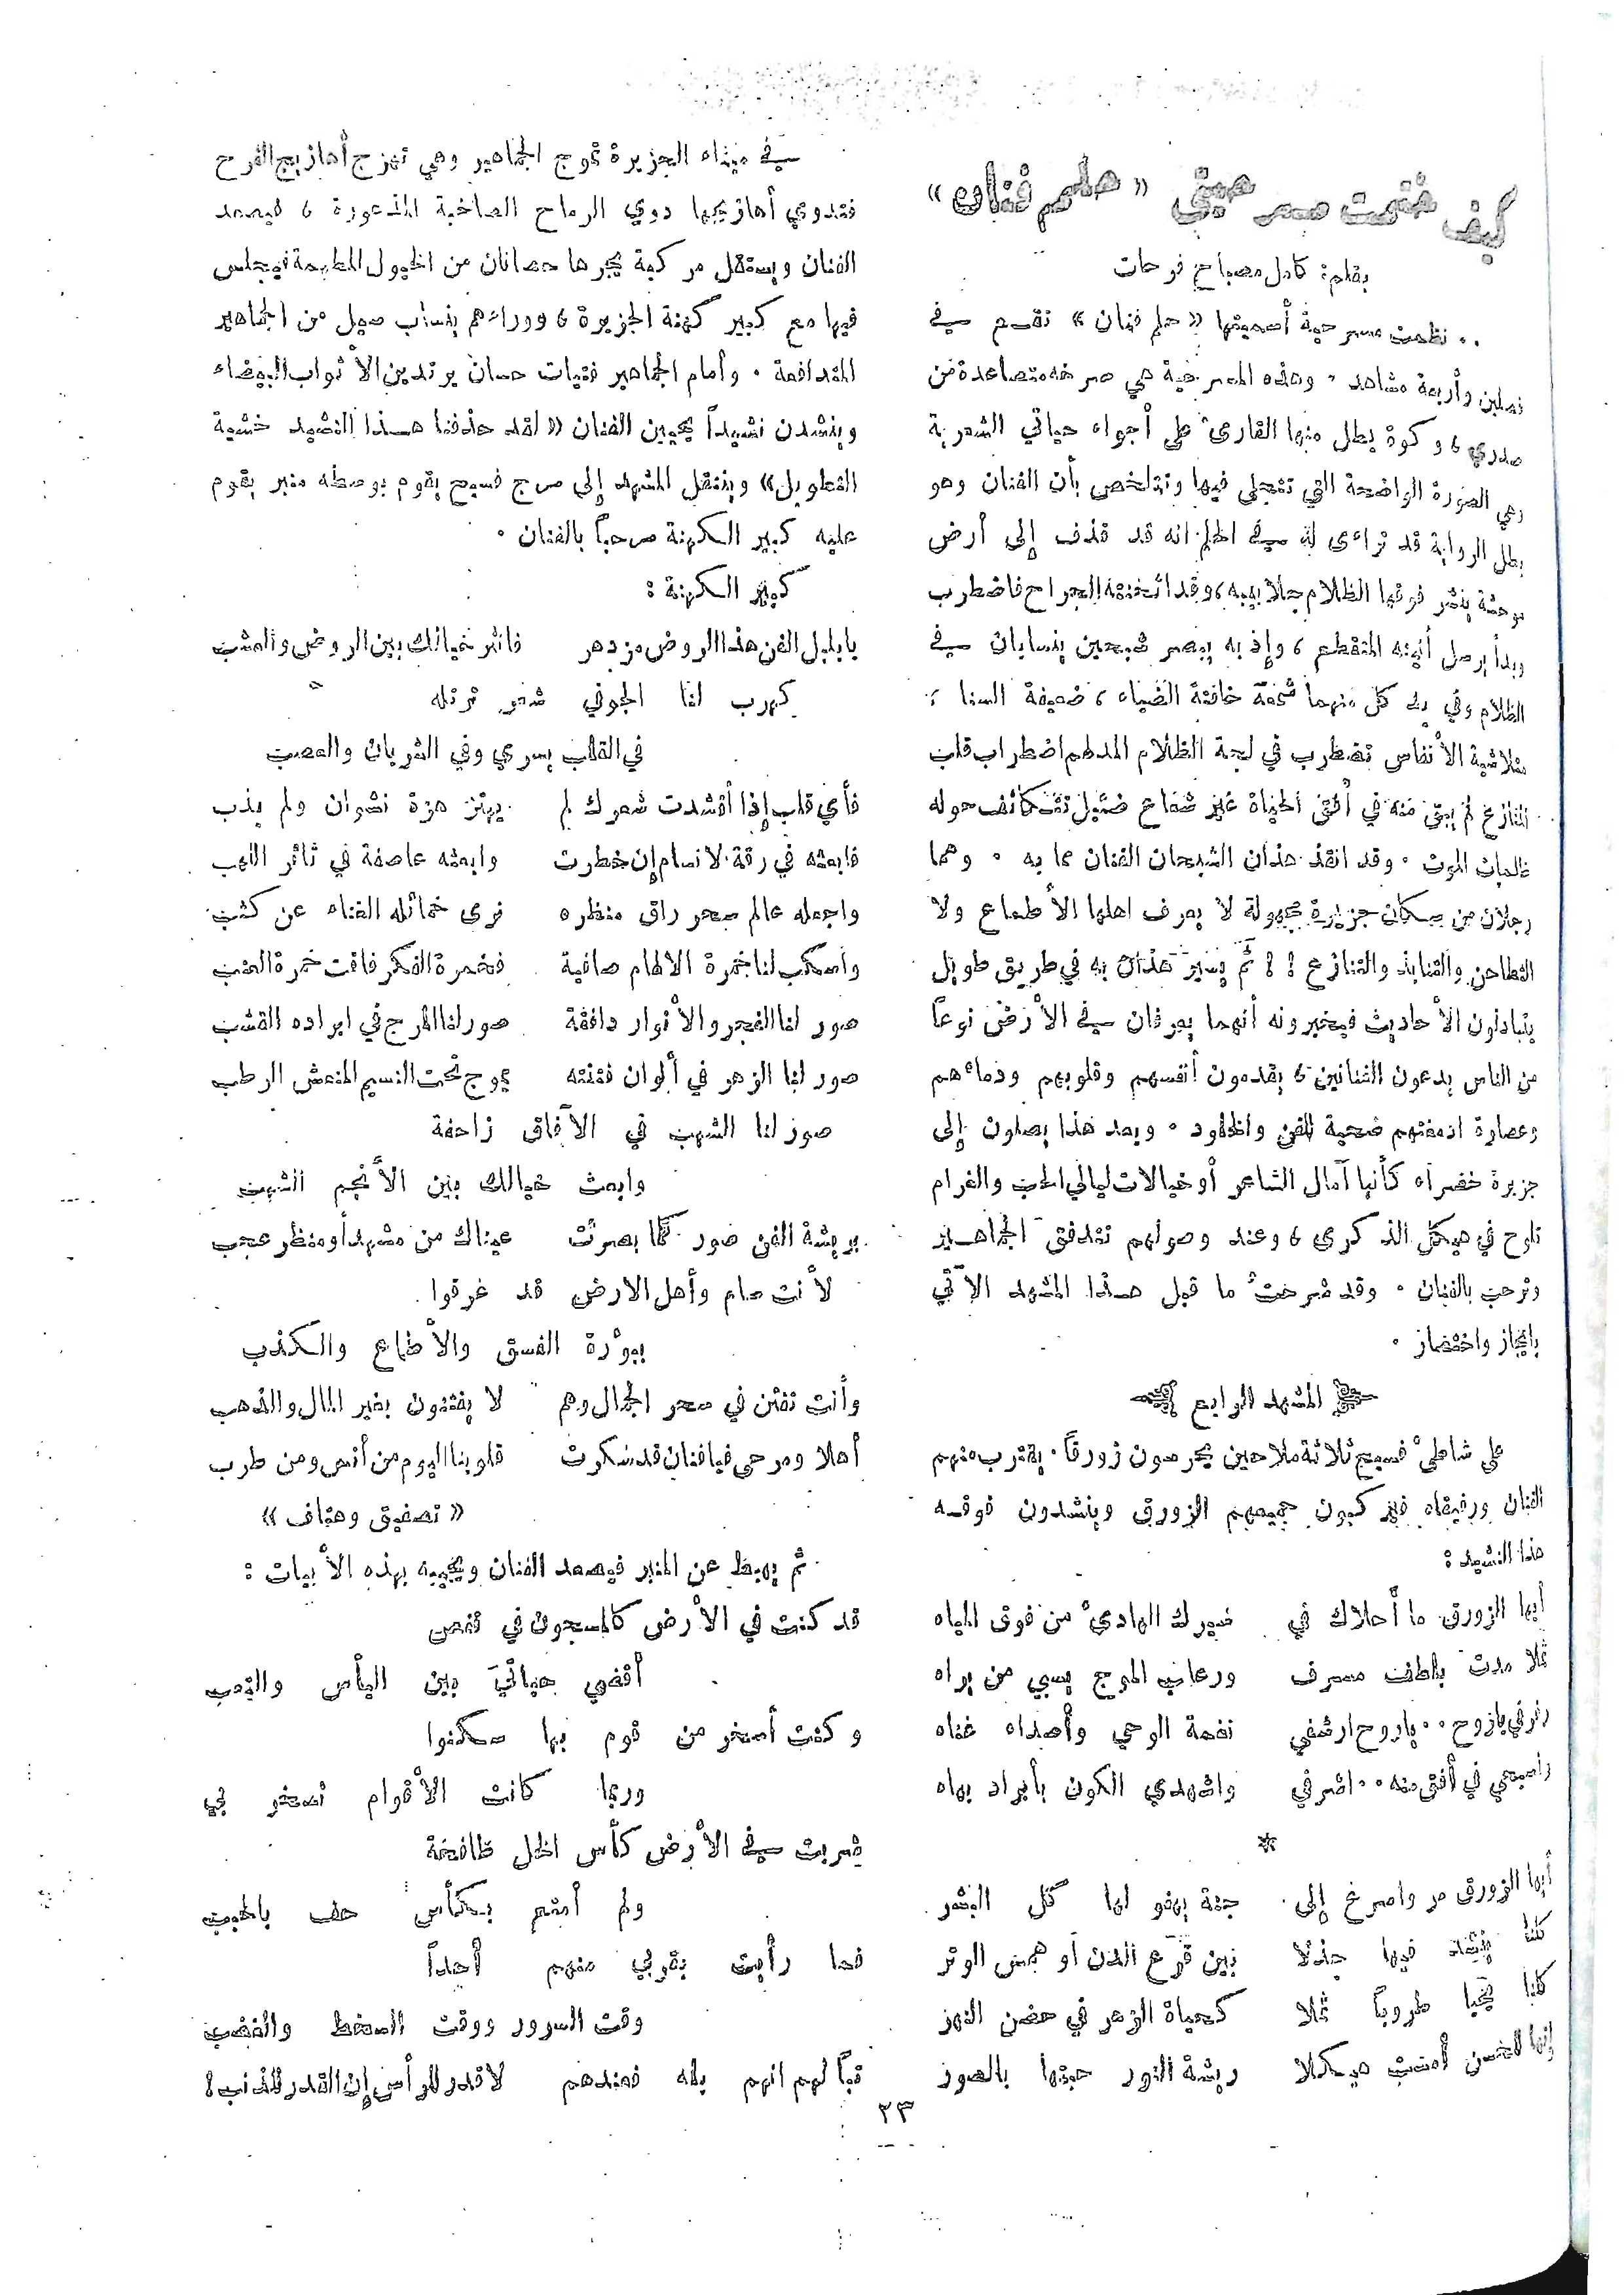 كيف ختمت مسرحيتي «حلم فنان»
بقلم: كامل مصباح فرحات
.. نظمت مسرحية أسميتها «حلم فنان» تقسم في
فصلين وأربعة مشاهد . وهذه المسرحية هي صرخة متصاعدة من
صدري ، وكوة يطل منها القارئ على أجواء حياتي الشعرية
وهي الصورة الواضحة التي تتجلى فيها وتتلخص بأن الفنان وهو
بطل الرواية قد تراءى له في الحلم انه قد قذف إلى أرض
موحشة ينشر فوقها الظلام جلابيبه ، وقد أثخنته الجراح فاضطرب
وبدأ يرسل أنينه المتقطع ، وإذ به يبصر شبحين ينسابان في
الظلام وفي يد كل منهما شمعة خافتة الضياء ، ضعيفة السنا ،
متلاشية الأنفاس تضطرب في لجة الظلام المدلهم اضطراب قلب
المنازع لم يبق منه في أفق الحياة غير شعاع ضئيل تتكاثف حوله
غالبات الموت . وقد انقذ هذان الشبحان الفنان مما به . وهما
رجلان من سكان جزيرة مجهولة لا يعرف اهلها الأطماع ولا
التطاحن والتنابذ والتنازع ! ! ثم يسير هذان به في طريق طويل
يتبادلون الأحاديث فيخبرونه أنهما يعرفان في الأرض نوعاً
من الناس يدعون الفنانين ، يقدمون أنفسهم وقلوبهم ودماءهم
وعصارة ادمغتهم ضحية للفن والخلود . وبعد هذا يصلون إلى
جزيرة خضراء كأنها آمال الشاعر أو خيالات ليالي الحب والغرام
تلوح في هيكل الذكرى ، وعند وصولهم تتدفق الجماهير
وترحب بالفنان . وقد شرحت ما قبل هذا المشهد الآتي
بإيجاز واختصار .
المشهد الرابع
على شاطئ فسيح ثلاثة ملاحين يحرسون زورقاً . يقترب منهم
الفنان ورفيقاه فيركبون جميعهم الزورق وينشدون فوقه
هذا النشيد :
أيها الزورق ما أحلاك في    سيرك الهادئ من فوق المياه
ثملا مدت بلطف مسرف    ورعاب الموج يسبي من يراه
رفرفي ياروح .. ياروح ارشفي    نغمة الوحي وأصداء غناه
واسبحي في أفق منه .. اشرفي    واشهدي الكون بأبراد بهاه
*
أيها الزورق سر واسرع إلى    جنة يهفو لها كل البشر
كلنا ينقاد فيها جذلا    بين قرع الدن أو همس الوتر
كلنا يحيا طروباً ثملا    كحياة الزهر في حضن النهر
إنها للحسن أمست هيكلا    ريشة النور حبتها بالصور
في ميناء الجزيرة تموج الجماهير وهي تهزج أهازيج الفرح
فتدوي أهازيجها دوي الرياح الصاخبة المذعورة ، فيصعد
الفنان ويستقل مركبة يجرها حصانان من الخيول المطهمة فيجلس
فيها مع كبير كهنة الجزيرة ، ووراءهم ينساب سيل من الجماهير
المتدافعة . وأمام الجماهير فتيات حسان يرتدين الأثواب البيضاء
وينشدن نشيداً يحيين الفنان «لقد حذفنا هذا النشيد خشية
التطويل» وينتقل المشهد إلى مرج فسيح يقوم بوسطه منبر يقوم
عليه كبير الكهنة مرحباً بالفنان .
كبير الكهنة :
يا بلبل الفن هذا الروض مزدهر    فانثر خيالك بين الروض والعشب
كهرب لنا الجو في شعر ترتله
في القلب يسري وفي الشريان والعصب
فأي قلب إذا أنشدت شعرك لم    يهتز هزة نشوان ولم يذب
فابعثه في رقة الانسام إن خطرت    وابعثه عاصفة في ثائر اللهب
واجعله عالم سحر راق منظره    نرى خمائله الغناء عن كثب
واسكب لنا خمرة الالهام صافية    فخمرة الفكر فاقت خمرة العنب
صور لنا الفجر والأنوار دافقة    صور لنا المرج في ابراده القشب
صور لنا الزهر في ألوان فتنته    يموج تحت النسيم المنعش الرطب
صور لنا الشهب في الآفاق زاحفة
وابعث خيالك بين الأنجم الشهب
بريشة الفن صور كلما بصرت    عيناك من مشهد أو منظر عجب
لأنت سام وأهل الارض قد غرقوا
ببؤرة الفسق والأطماع والكذب
وأنت تفتن في سحر الجمال وهم    لا يفتنون بغير المال والذهب
أهلا ومرحى فيا فنان قد سكرت    قلوبنا اليوم من أنس ومن طرب
«تصفيق وهتاف»
ثم يهبط عن المنبر فيصعد الفنان ويجيبه بهذه الأبيات :
قد كنت في الأرض كالمسجون في قفص
أقضي حياتي بين اليأس والتعب
وكنت أسخر من قوم بها سكنوا
وربما كانت الأقوام تسخر بي
شربت في الأرض كأس الخل طافحة
ولم أمتع بكأس حف بالحبب
فما رأيت بقربي منهم أحداً
وقت السرور ووقت السخط والغضب
تباً لهم انهم بله فعندهم    لا قدر للرأس إن القدر للذنب !
٢٣